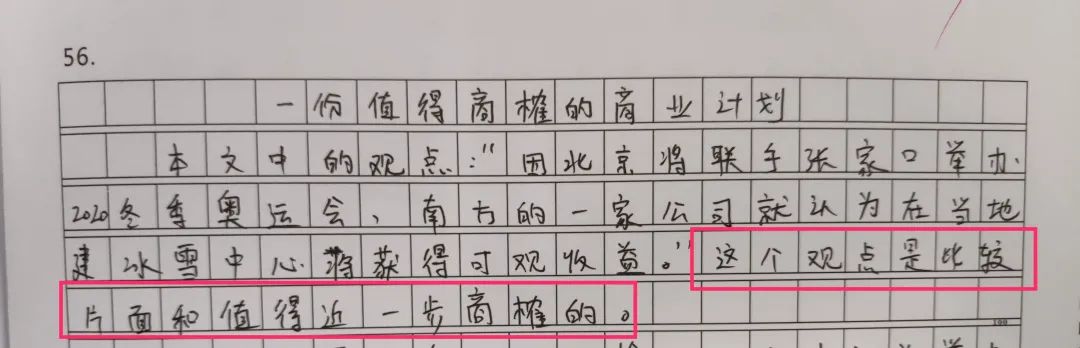 56.
一份值得商榷的商业计划
本文中的观点:"因北京将联手张家口举办
2020冬季奥运会、南方的一家公司就认为在当地
建冰雪中心将获得可观收益。"这个观点是比较
片面和值得近一步商榷的。
100